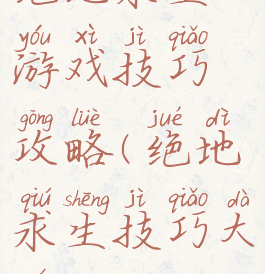 yóu xì jì qiǎo
游戏技巧
gōng lüè jué dì
攻略(绝地
qiú shēng jì qiǎo dà
求生技巧大